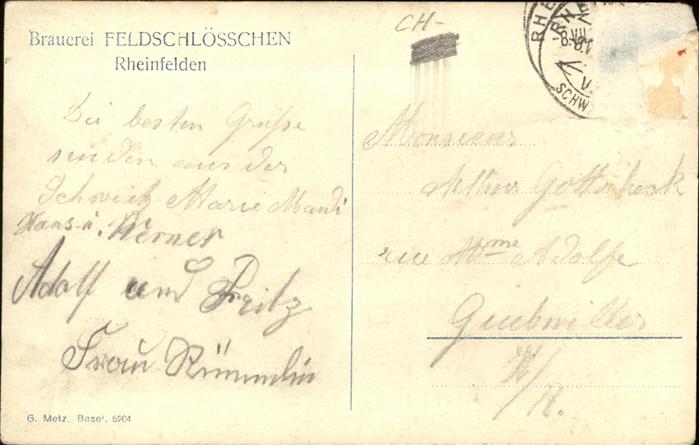 Brauerei FELDSCHLÖSSCHEN
Rheinfelden
CH-
Die besten Grüße
senden aus der
Schweiz Marie Mandi
Hans u. Werner
Adolf und Fritz
Frau Rümmlin
Monsieur
Arthur
rue Mme Adolfe
Guebwiller
H/R.
G. Metz. Basel. 5204
RHE
SCHW